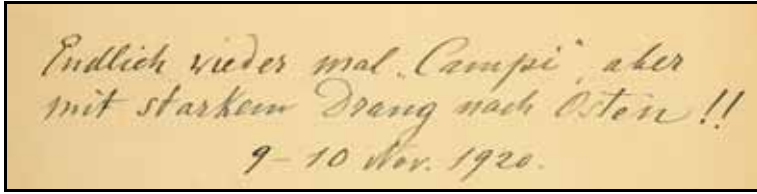 Endlich wieder mal „Campi“, aber
mit starkem Drang nach Osten!!
9–10 Nov. 1920.